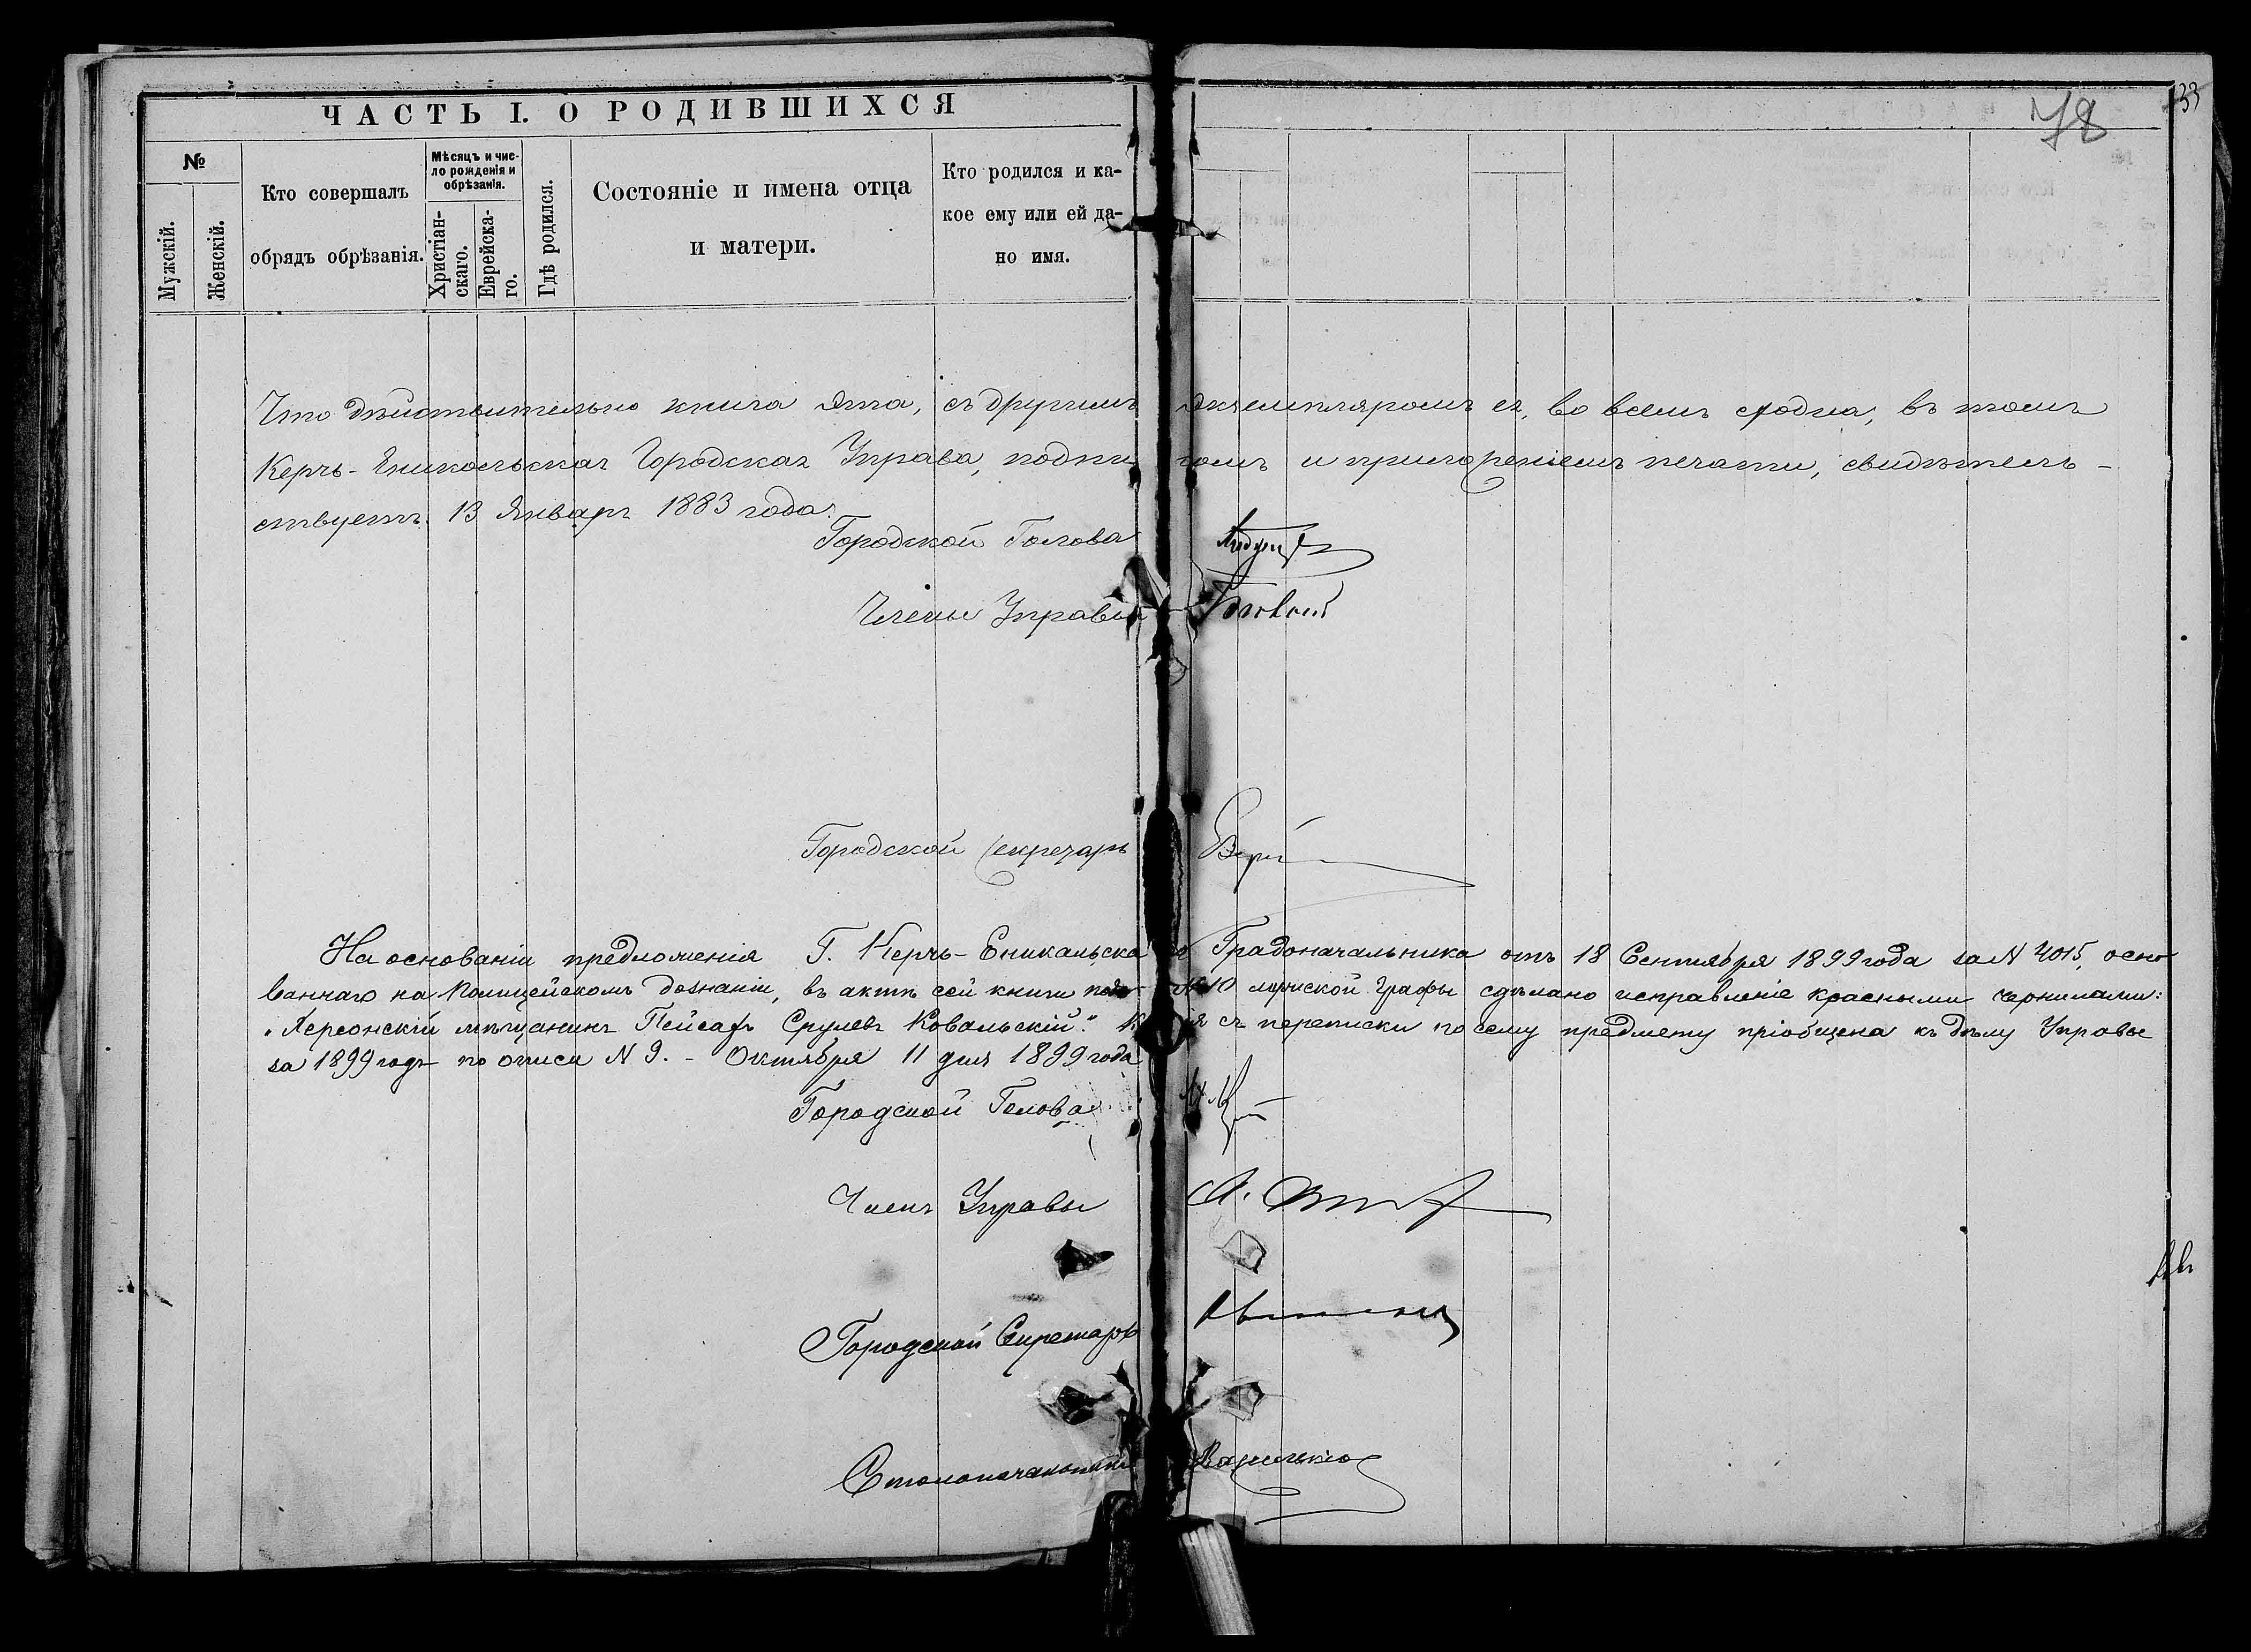 ЧАСТЬ I. О РОДИВШИХСЯ
78
33
№
Мужскій.
Женскій.
Кто совершалъ
обрядъ обрѣзанія.
Мѣсяцъ и чис-
ло рожденія и
обрѣзанія.
Христіан-
скаго.
Еврейска-
го.
Гдѣ родился.
Состояніе и имена отца
и матери.
Кто родился и ка-
кое ему или ей да-
но имя.
Что дѣйствительно книга эта, съ другимъ экземпляромъ ея, во всемъ сходна, въ томъ
Керчь-Еникольская Городская Управа, подпи сомъ и приложеніемъ печати, свидѣтель-
ствуетъ. 13 Января 1883 года.
Городской Голова
Члены Управы
Городской Секретарь
На основаніи предложенія Г. Керчь-Еникальскаго Градоначальника отъ 18 Сентября 1899 года за N 4015, осно-
ваннаго на Полицейскомъ дознаніи, въ актѣ сей книги подъ № 10 мужской графы сдѣлано исправленіе красными чернилами:
"Херсонскій мѣщанинъ Пейсахъ Срулевъ Ковальскій." съ переписки по сему предмету пріобщена къ дѣлу Управы
за 1899 годъ по описи N 9. - Октября 11 дня 1899 года
Городской Голова
Членъ Управы
Городской Секретарь
Столоначальникъ